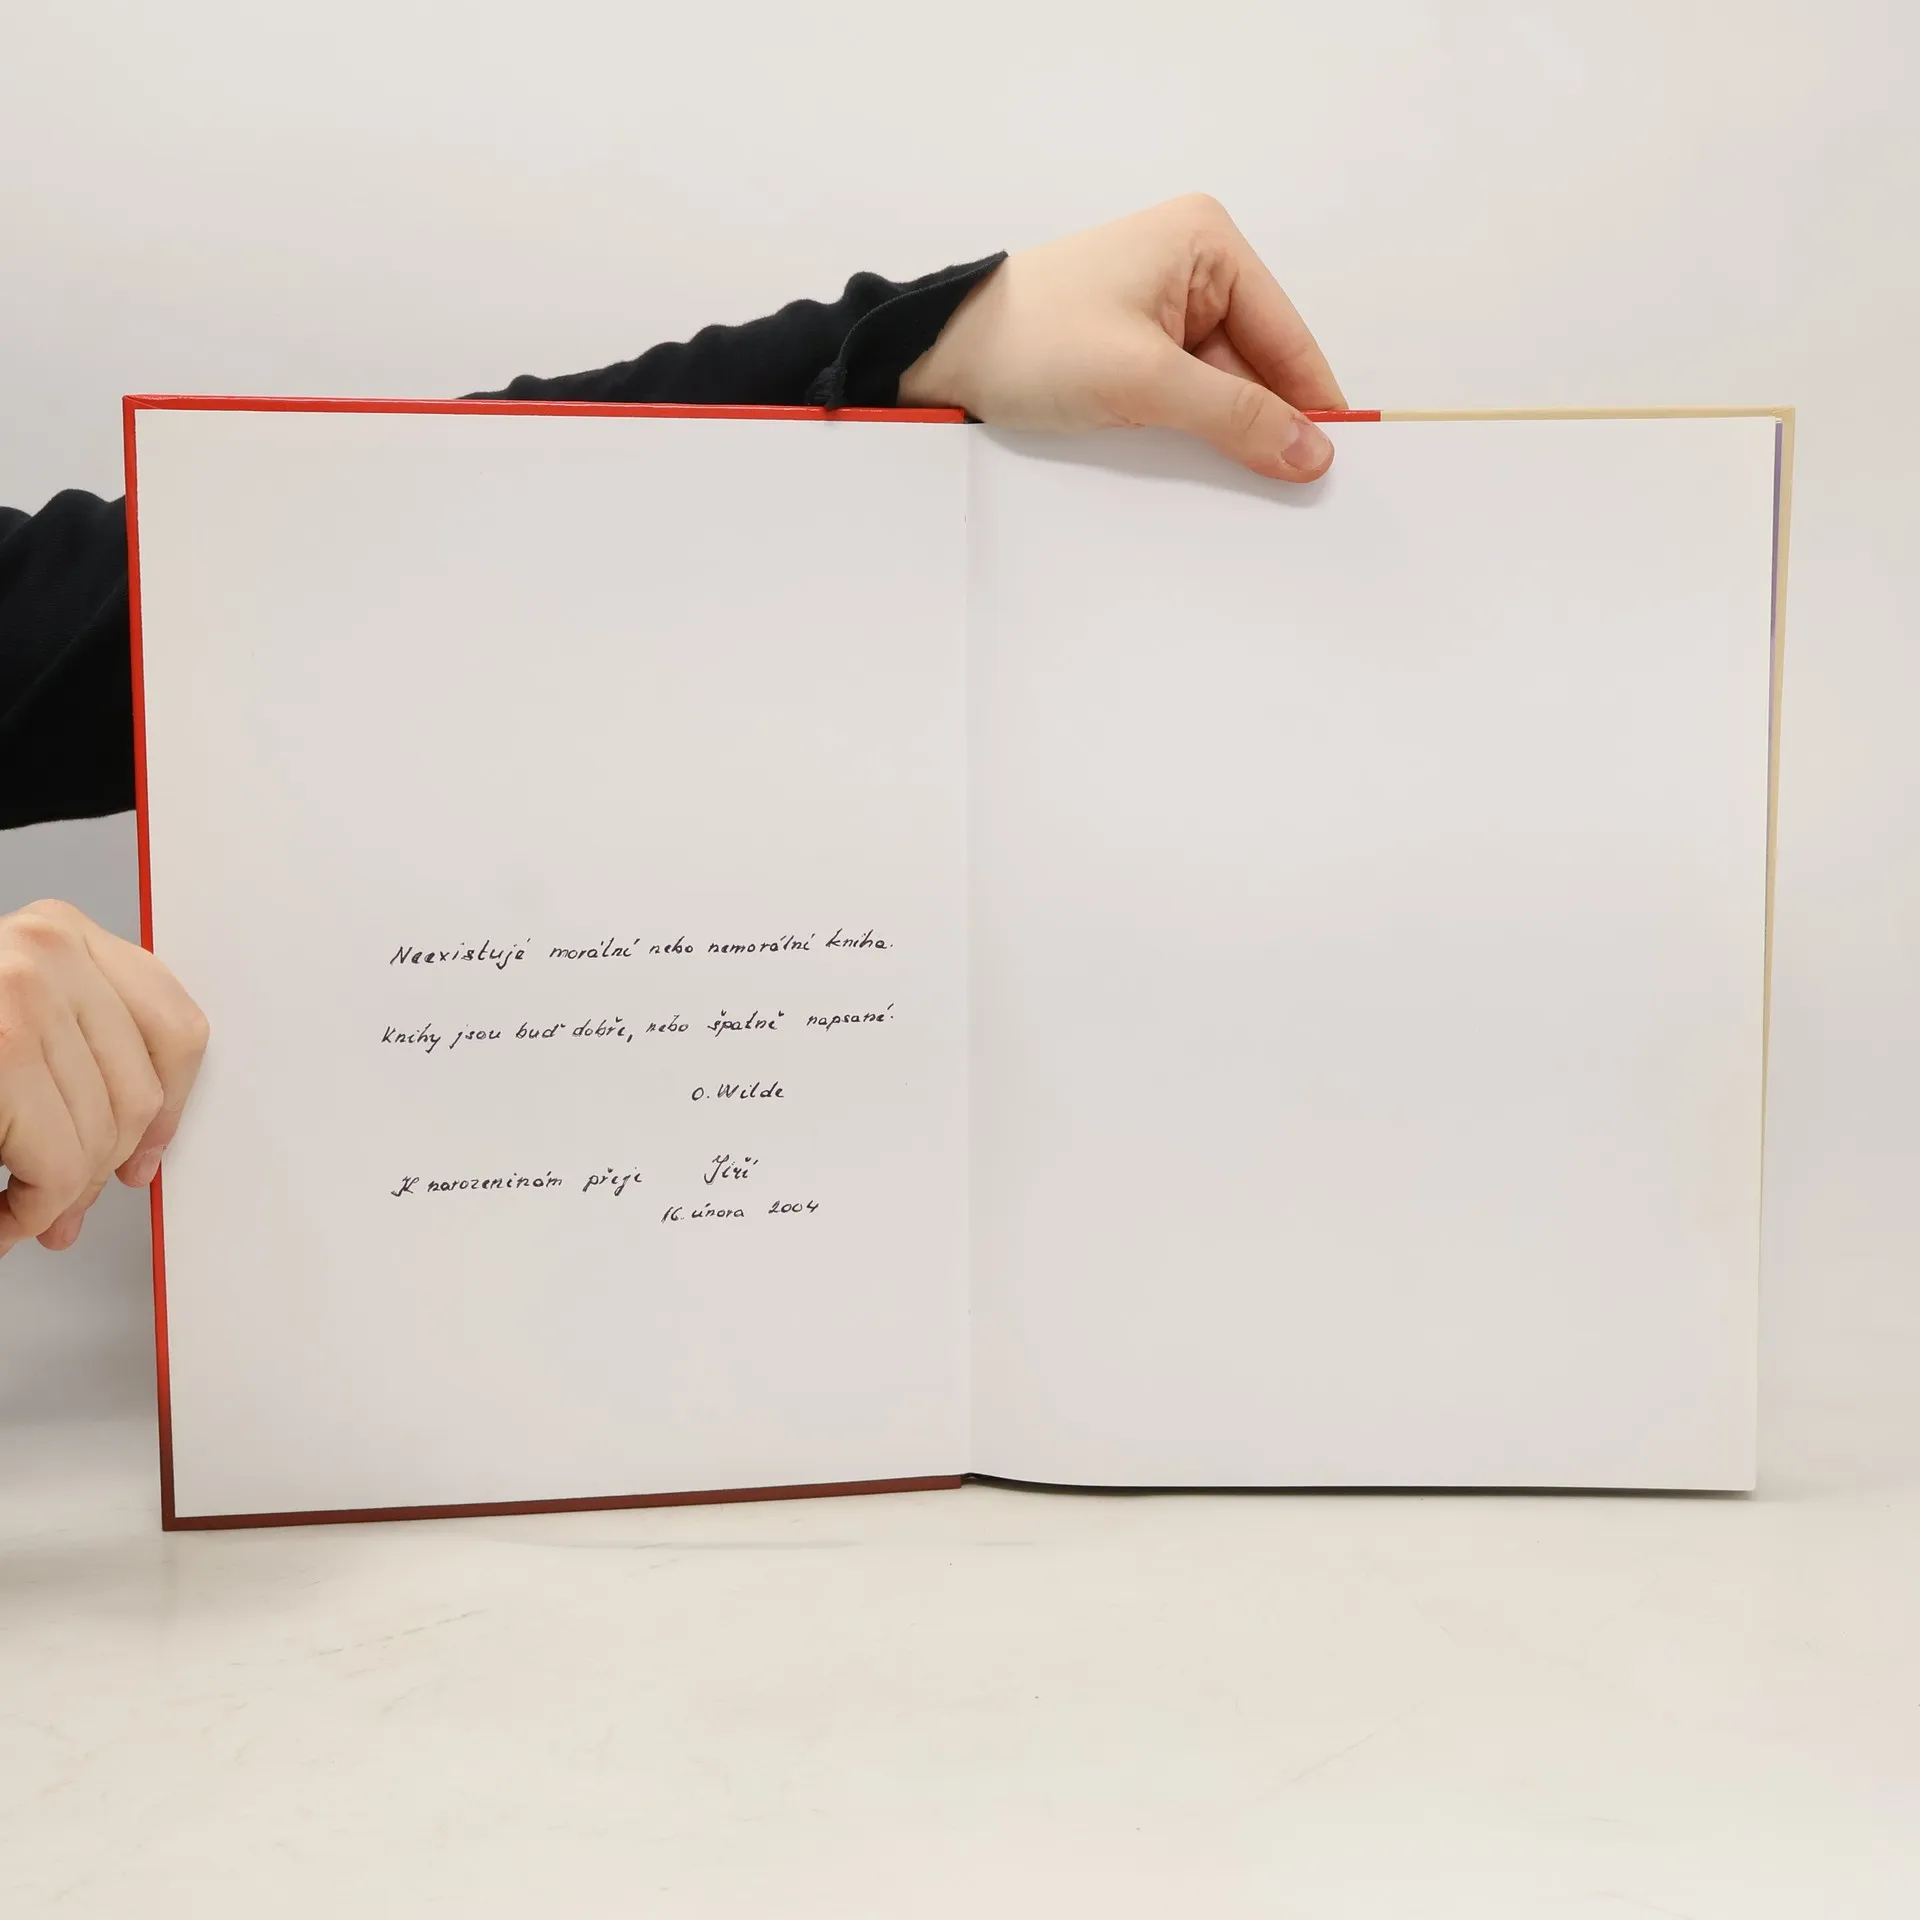 Neexistuje morální nebo nemorální kniha.
Knihy jsou buď dobře, nebo špatně napsané.
O. Wilde
K narozeninám přeje Jiří
16. února 2004